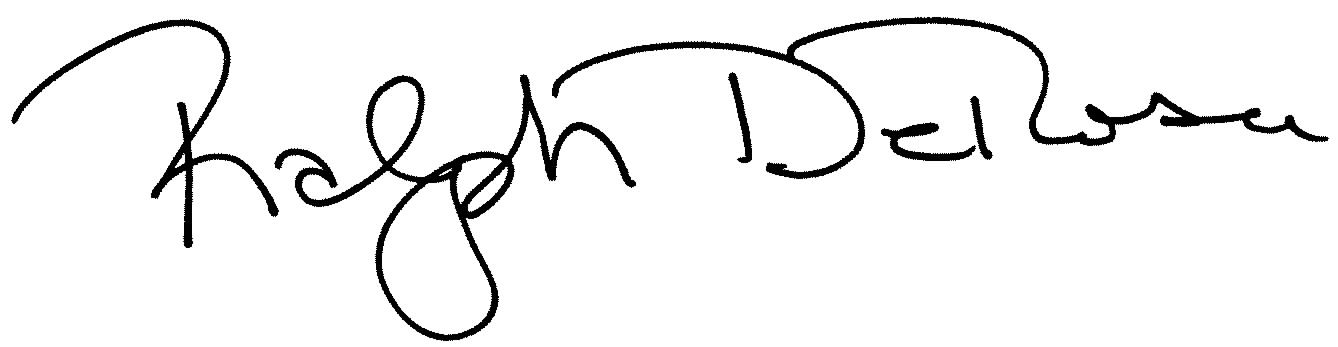 Ralph DeRosa